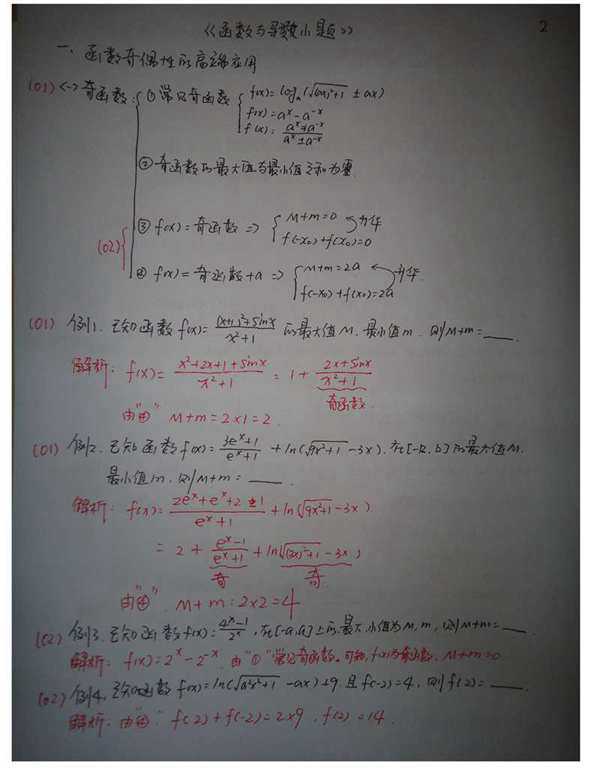 《函数与导数小题》 2
一、函数奇偶性的高端应用
(01) <一> 奇函数: ① 常见奇函数 f(x)=logₐ(√(ax)²+1 ± ax)
f(x)=aˣ-a⁻ˣ
f(x)=
② 奇函数的最大值与最小值之和为零
(02) ③ f(x)=奇函数 ⇒ M+m=0 升华
f(-x₀)+f(x₀)=0
④ f(x)=奇函数+a ⇒ M+m=2a 升华
f(-x₀)+f(x₀)=2a
(01) 例1. 已知函数 f(x)=((x+1)²+sinx)/(x²+1) 的最大值M, 最小值m, 则M+m=____.
解析: f(x)=(x²+2x+1+sinx)/(x²+1) = 1+(2x+sinx)/(x²+1)
奇函数
由"④" M+m=2×1=2.
(01) 例2. 已知函数 f(x)=(3eˣ+1)/(eˣ+1) +ln(√9x²+1 -3x), 在[-b, b]的最大值M,
最小值m, 则M+m=____.
解析: f(x)= +ln(√9x²+1-3x)
=2+(eˣ-1)/(eˣ+1)+ln(√(3x)²+1-3x)
奇 奇
由"④". M+m=2×2=4
(02) 例3. 已知函数 f(x)=(4ˣ-1)/2ˣ, 在[-a,a]上的最大,小值为M, m, 则M+m=____.
解析: f(x)=2ˣ-2⁻ˣ. 由"①"常见奇函数,可知,f(x)为奇函数, M+m=0
(02) 例4. 已知函数 f(x)=ln(√a²x²+1 -ax)+9, 且f(-2)=4, 则f(2)=____.
解析: 由"④" f(2)+f(-2)=2×9, f(2)=14.